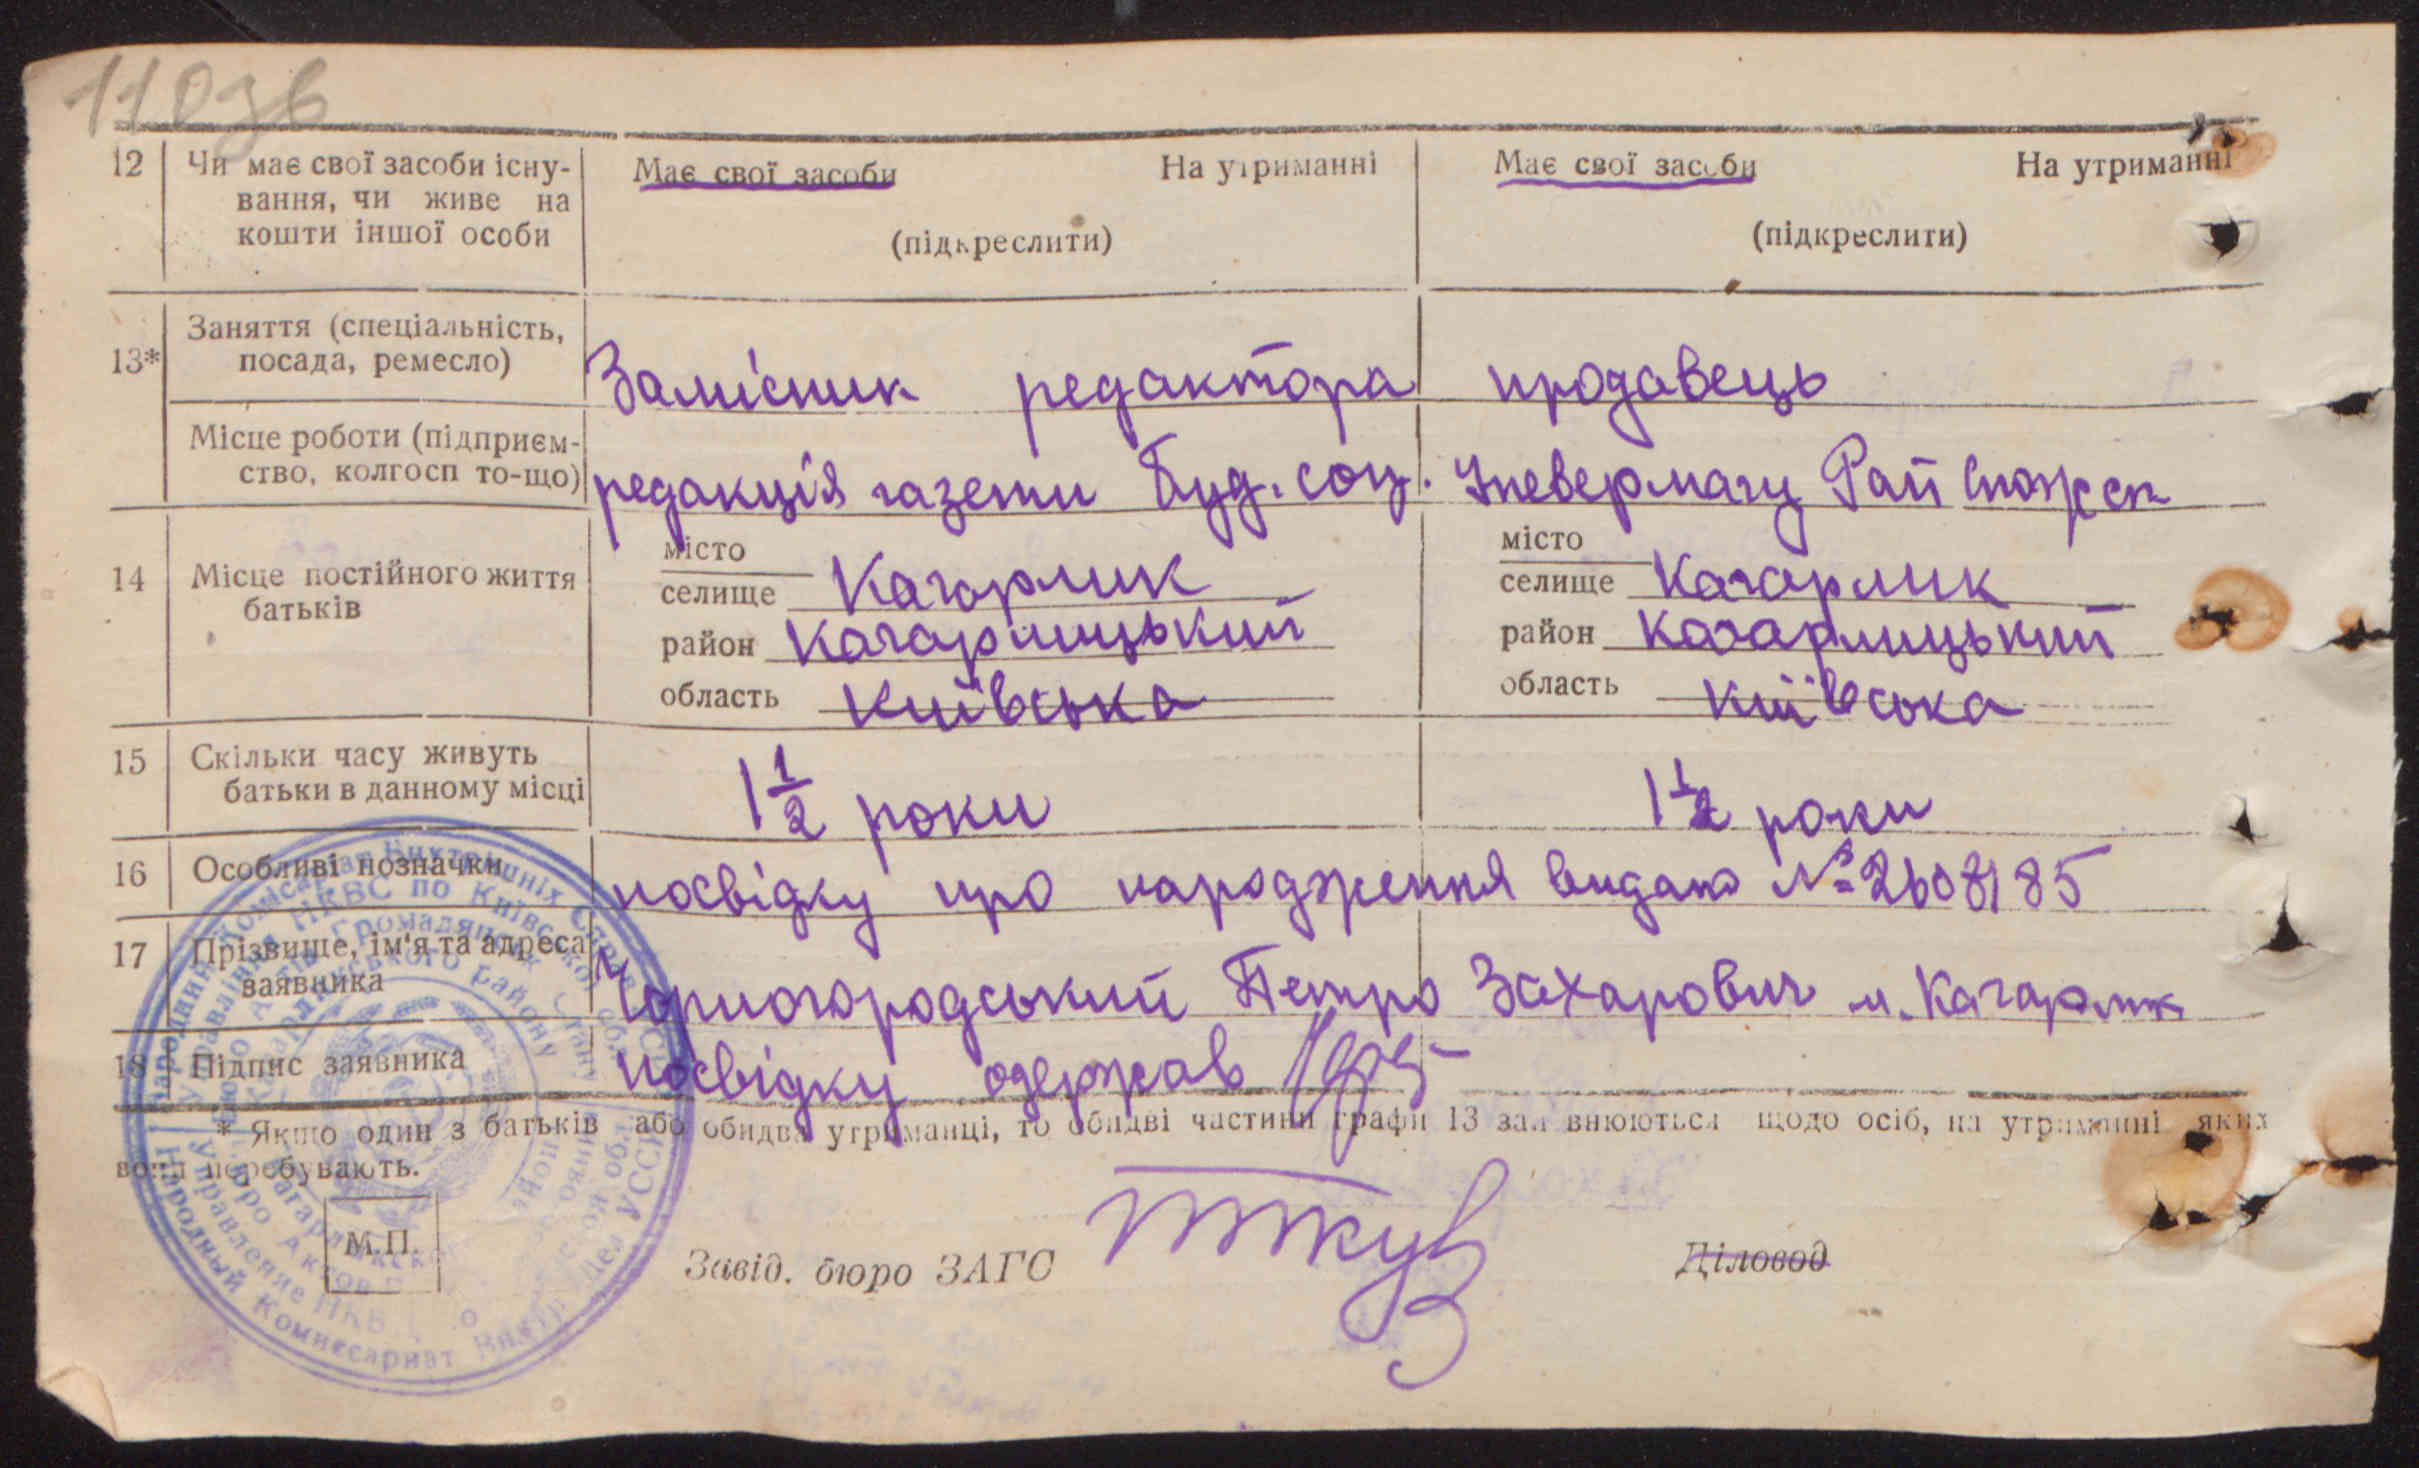 110зв
12 Чи має свої засоби існу- Має свої засоби На утриманні Має свої засоби На утриманні
вання, чи живе на
кошти іншої особи (підкреслити) (підкреслити)
Заняття (спеціальність,
13* посада, ремесло) Замісник редактора продавець
Місце роботи (підприєм-
ство, колгосп то-що) редакція газети Буд. соц. Уневермагу Рай Спожсп
місто місто
14 Місце постійного життя селище Кагарлик селище Кагарлик
батьків район Кагарлицький район Кагарлицький
область Київська область Київська
15 Скільки часу живуть
батьки в данному місці 1 1/2 роки 1 1/2 роки
16 Особливі позначки посвідку про народження видано №
17 Прізвище, ім'я та адреса
заявника Чорногородський Петро Захарович м. Кагарлик
18 Підпис заявника посвідку одержав
* Якщо один з батьків або обидва утриманці, то обидві частини графи 13 заповнюються щодо осіб, на утриманні яких
вони перебувають.
М.П.
Завід. бюро ЗАГС Діловод
Народний Комісаріат Внутрішніх Справ
Управління НКВС по Київській обл.
Народный Комиссариат Внутр. Дел УССР